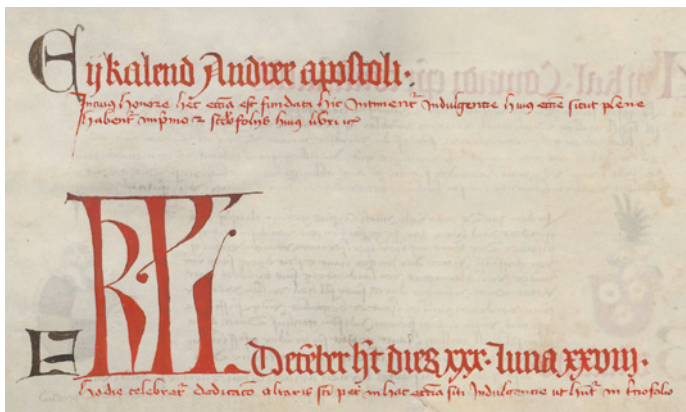 E ij kalend Andree apostoli.
In cuius honore hec ecclia est fundata hic intment Indulgentie huius ecctie sicut plene
habent in primo z scdo folijs huius libri ic
KPL
E Deceber ht dies xxx. luna xxviij.
hodie celebrat dedicaco altaris sci petr in hac ecctia siti Indulgentie ut hnt in tcio folio